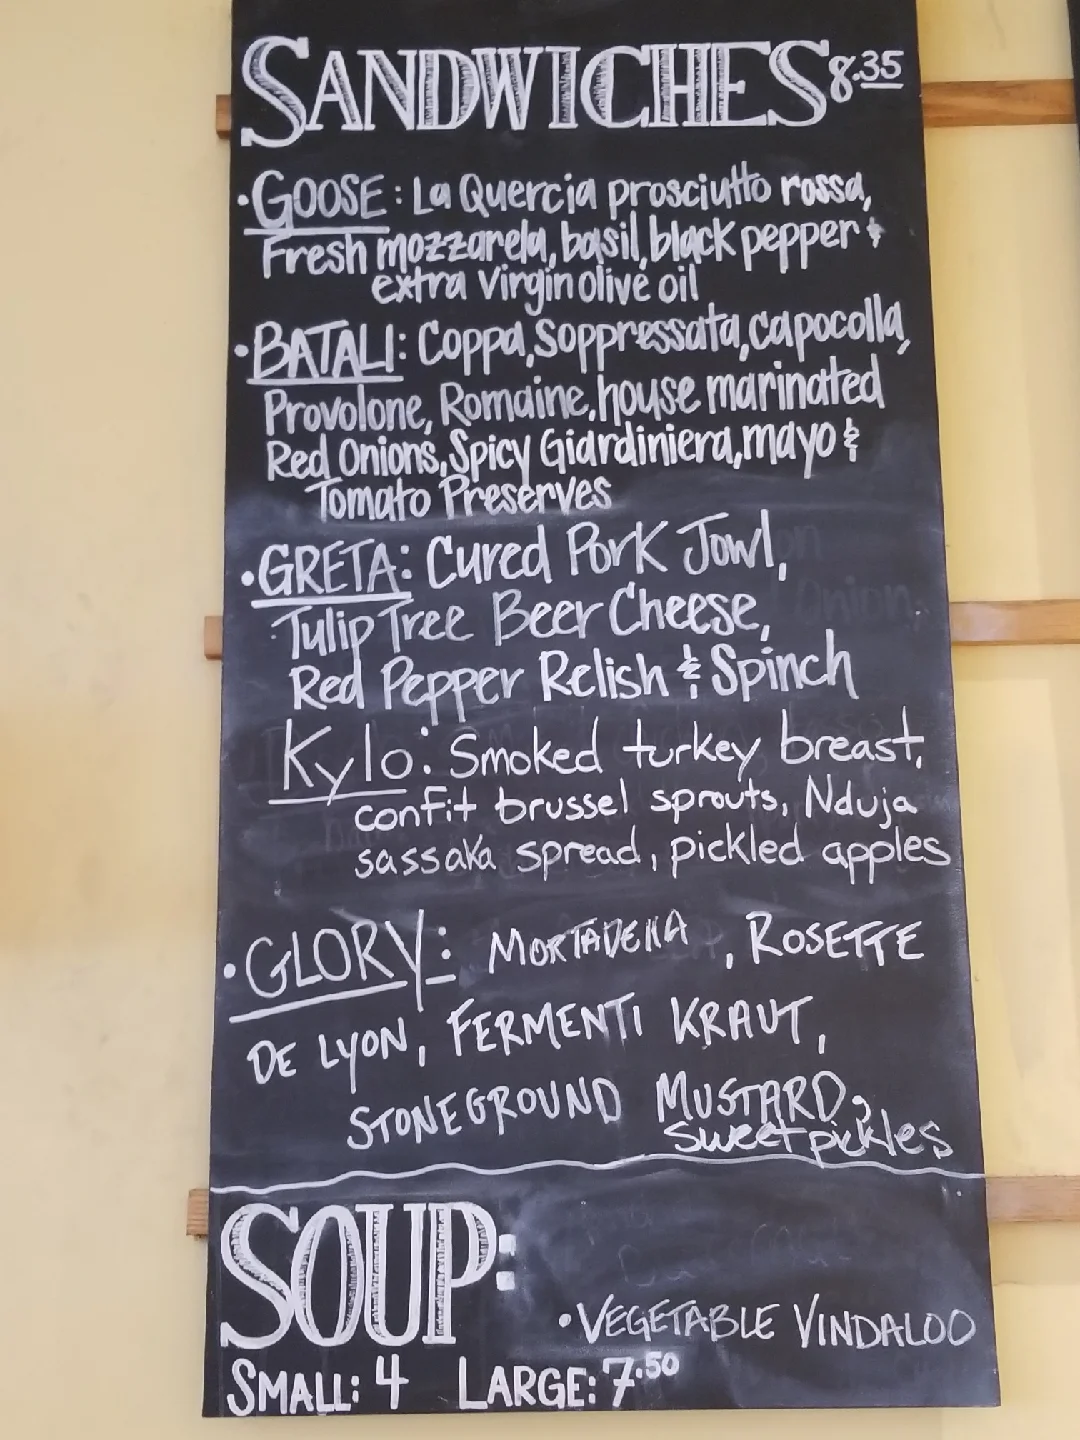 SANDWICHES 8.35
•GOOSE: La Quercia prosciutto rossa,
Fresh mozzarela, basil, black pepper &
extra virgin olive oil
•BATALI: Coppa, Soppressata, capocolla,
Provolone, Romaine, house marinated
Red Onions, Spicy Giardiniera, mayo &
Tomato Preserves
•GRETA: Cured Pork Jowl,
Tulip Tree Beer Cheese,
Red Pepper Relish & Spinch
Kylo: Smoked turkey breast,
confit brussel sprouts, Nduja
sassaka spread, pickled apples
•GLORY: MORTADELLA, ROSETTE
DE LYON, FERMENTI KRAUT,
STONEGROUND MUSTARD,
sweet pickles
SOUP:
•VEGETABLE VINDALOO
SMALL: 4 LARGE: 7.50